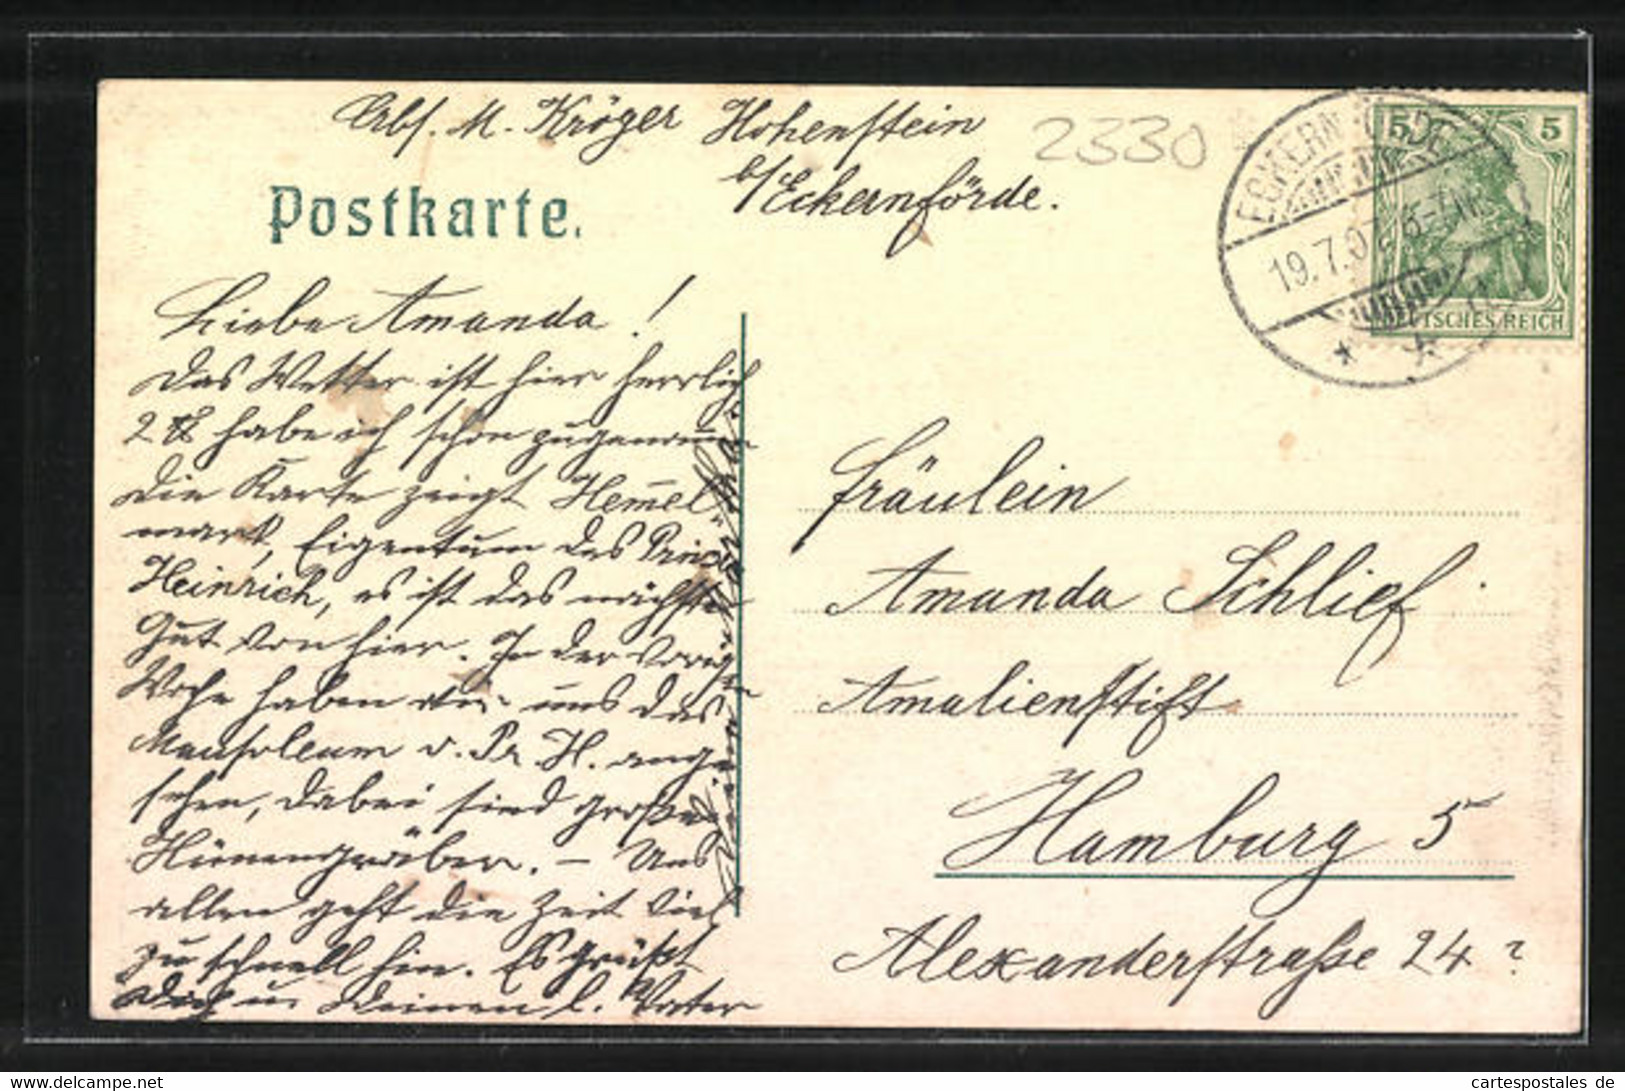 Abs. M. Kröger Hohenstein
b/Eckernförde.
2330
Postkarte.
ECKERNFÖRDE
19.7.07. 6-7N.
5 5
DEUTSCHES REICH
Liebe Amanda!
Das Wetter ist hier herrlich
2 ℔ habe ich schon zugenommen
Die Karte zeigt Hem̄el-
mark, Eigentum des Prinz
Heinrich, es ist das nächste
Gut von hier. In der vorigen
Woche haben wir uns das
Mausoleum v. Pr. H. ange-
sehen, dabei sind große
Hünengräber. – Uns
allen geht die Zeit viel
zu schnell hin. Es grüßt
Dich u. Deinen l. Vater
Fräulein
Amanda Schlief
Amalienstift
Hamburg 5
Alexanderstraße 24?
cartespostales.de
www.delcampe.net